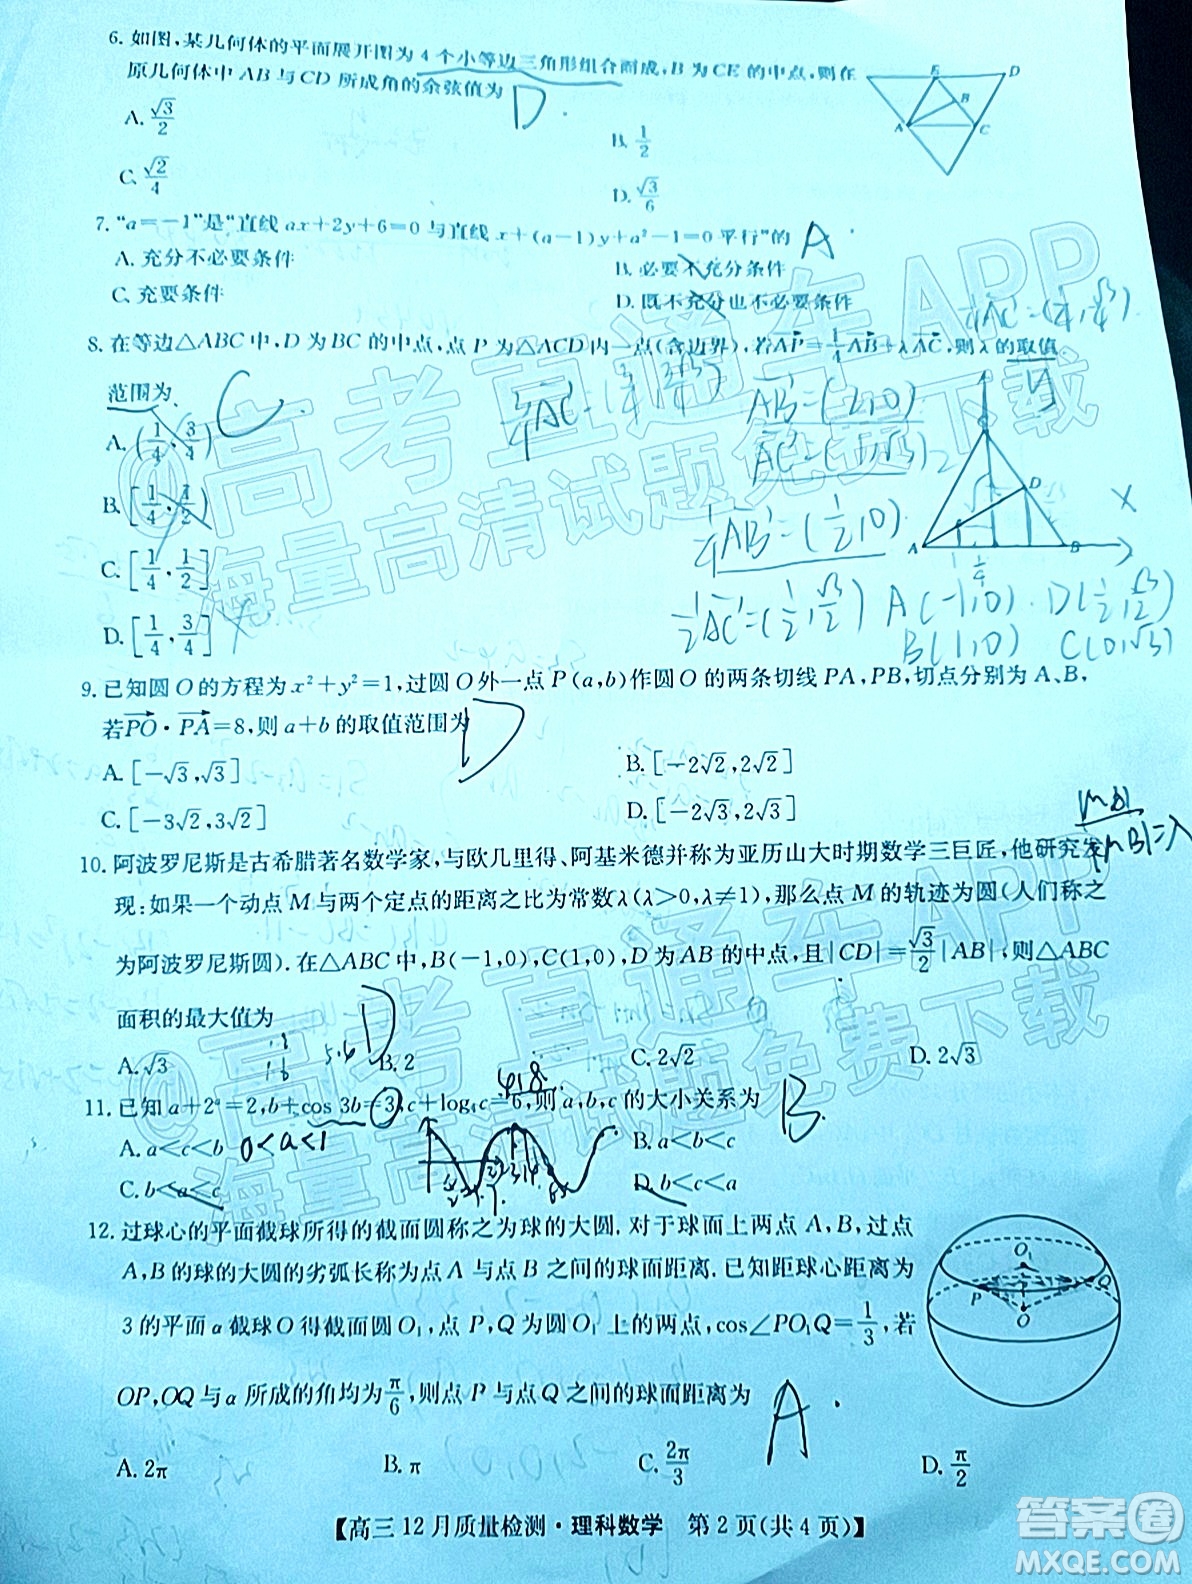 6. 如图,某几何体的平面展开图为4个小等边三角形组合而成,B为CE的中点,则在
原几何体中AB与CD所成角的余弦值为 D
A. √3/2
B. 1/2
C. √2/4
D. √3/6
E D B A C
7. “a=-1”是“直线ax+2y+6=0与直线x+(a-1)y+a²-1=0平行”的 A
A. 充分不必要条件
B. 必要不充分条件
C. 充要条件
D. 既不充分也不必要条件
8. 在等边△ABC中,D为BC的中点,点P为△ACD内一点(含边界),若AP=1/4AB+λAC,则λ的取值
范围为 C
A. (1/4,3/4)
B. [1/4,1/2)
C. [1/4,1/2]
D. [1/4,3/4]
AB=(2,0)
AC=(1,√3)
1/4AB=(1/2,0)
1/2AC=(1/2,√3/2)
A(-1,0) D(1/2,√3/2)
B(1,0) C(0,√3)
A D B X
9. 已知圆O的方程为x²+y²=1,过圆O外一点P(a,b)作圆O的两条切线PA,PB,切点分别为A、B,
若PO·PA=8,则a+b的取值范围为 D
A. [-√3,√3]
B. [-2√2,2√2]
C. [-3√2,3√2]
D. [-2√3,2√3]
10. 阿波罗尼斯是古希腊著名数学家,与欧几里得、阿基米德并称为亚历山大时期数学三巨匠,他研究发
现:如果一个动点M与两个定点的距离之比为常数λ(λ>0,λ≠1),那么点M的轨迹为圆(人们称之
为阿波罗尼斯圆).在△ABC中,B(-1,0),C(1,0),D为AB的中点,且|CD|=√3/2|AB|,则△ABC
面积的最大值为 D
A. √3
B. 2
C. 2√2
D. 2√3
11. 已知a+2ᵃ=2,b+cos 3b=3,c+log₄c=6,则a,b,c的大小关系为 B
A. a<c<b 0<a<1
B. a<b<c
C. b<a<c
D. b<c<a
12. 过球心的平面截球所得的截面圆称之为球的大圆.对于球面上两点A,B,过点
A,B的球的大圆的劣弧长称为点A与点B之间的球面距离.已知距球心距离为
3的平面α截球O得截面圆O₁,点P,Q为圆O₁上的两点,cos∠PO₁Q=1/3,若
OP,OQ与α所成的角均为π/6,则点P与点Q之间的球面距离为 A
A. 2π
B. π
C. 2π/3
D. π/2
O₁ P Q O
【高三12月质量检测·理科数学 第2页(共4页)】
@高考直通车APP
海量高清试题免费下载
@高考直通车APP
海量高清试题免费下载
答案圈
MXQE.COM